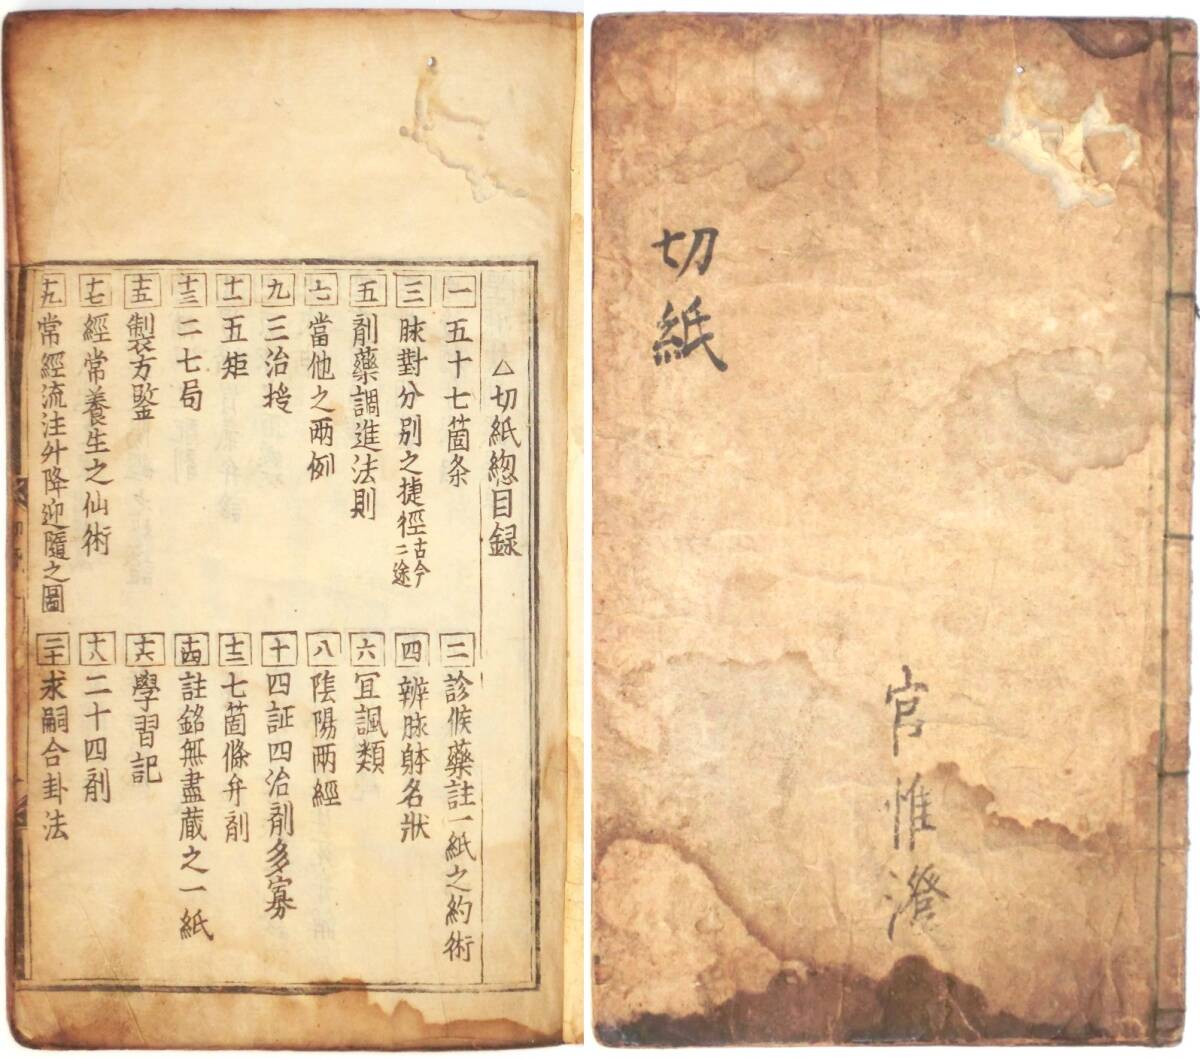 切紙
官惟澄
△切紙緫目録
一 五十七箇条
二 診候藥註一紙之約術
三 脉對分別之捷徑 古今二途
四 辨脉躰名状
五 剤藥調進法則
六 冝諷類
七 當他之两例
八 陰陽两經
九 三治授
十 四証四治剤多寡
十一 五矩
十二 七箇條弁剤
十三 二七局
十四 註銘無盡蔵之一紙
十五 製方鍳
十六 學習記
十七 經常養生之仙術
十八 二十四剤
十九 常經流注升降迎隨之圖
二十 求嗣合卦法